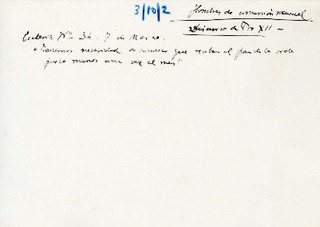 3/10/2
Hombres de comunión mensual
Discurso de Pío XII -
Ecclesia Nº 34. 7 de Marzo.
"Tenemos necesidad de hombres que reciban el pan de la vida
por lo menos una vez al mes"